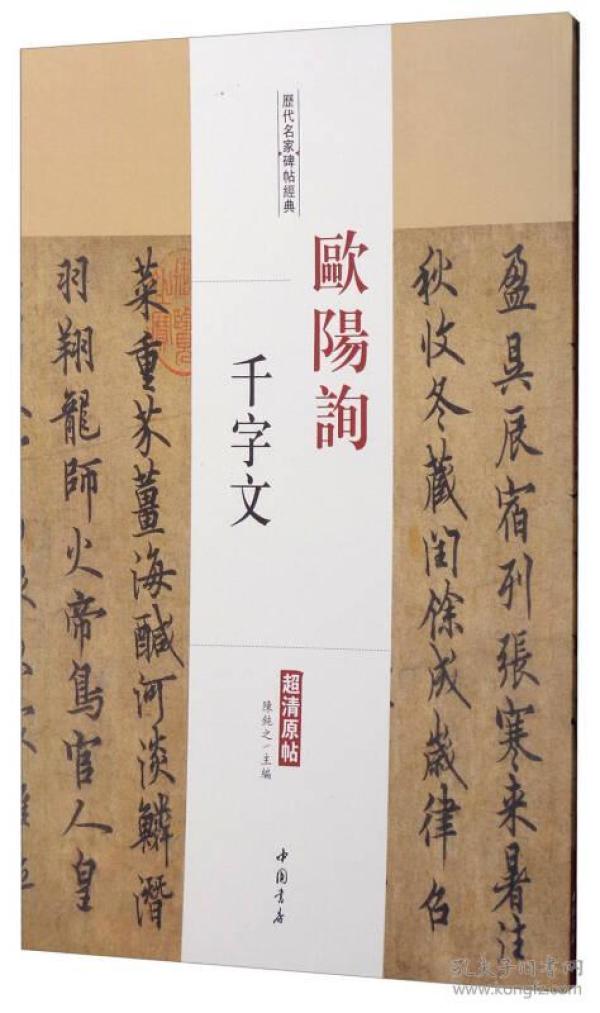 盈昃辰宿列張寒来暑往
秋收冬藏閏餘成歲律吕
歷代名家碑帖經典
歐陽詢
千字文
超清原帖
陳純之/主編
中国书店
菜重芥薑海醎河淡鱗潛
羽翔龍師火帝鳥官人皇
孔夫子旧书网
www.kongfz.com